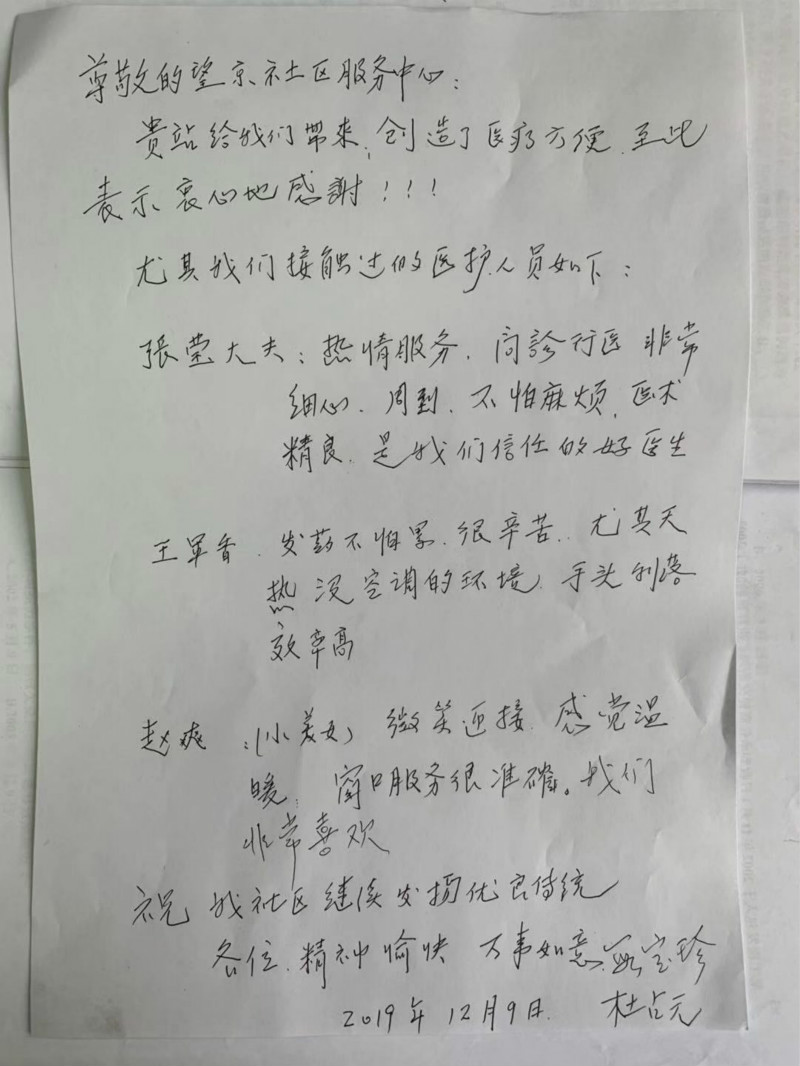 尊敬的望京社区服务中心：
贵站给我们带来，创造了医疗方便，至此
表示衷心地感謝！！！
尤其我们接触过的医护人员如下：
張莹大夫：热情服务，问診行医非常
细心、周到、不怕麻烦，医术
精良，是我们信任的好医生
王军香、发药不怕累、很辛苦、尤其天
热没空调的环境，手头利落
效率高
赵爽：(小美女) 微笑迎接，感觉温
暖，窗口服务很准确。我们
非常喜欢
祝我社区继续发扬优良传统
各位、精神愉快 万事如意 宝珍
2019年12月9日. 杜占元